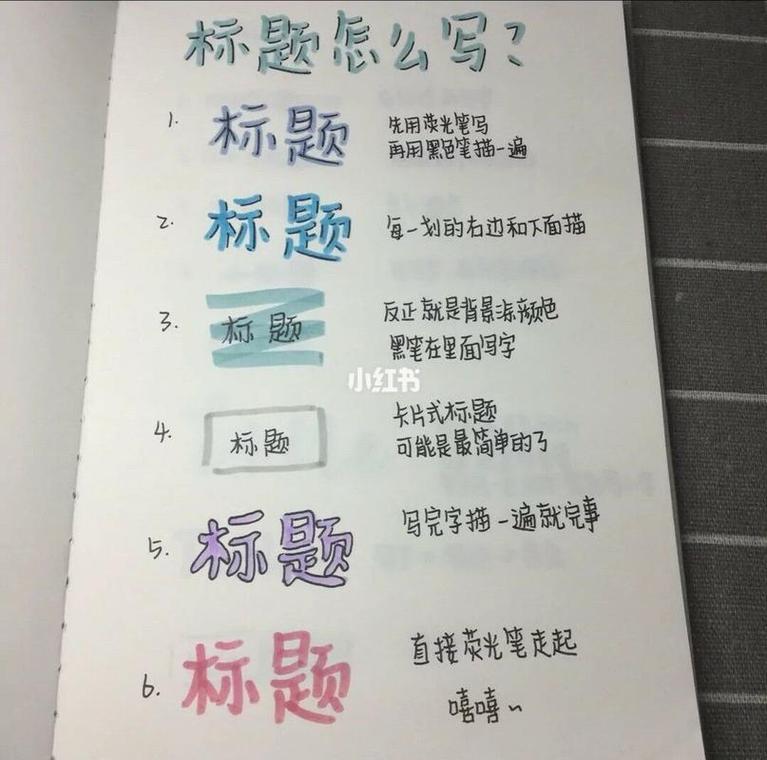 标题怎么写?
1. 标题 先用荧光笔写
再用黑色笔描一遍
2. 标题 每一划的右边和下面描
3. 标题 反正就是背景涂颜色
黑笔在里面写字
小红书
4. 标题 卡片式标题
可能是最简单的了
5. 标题 写完字描一遍就完事
6. 标题 直接荧光笔走起
嘻嘻~